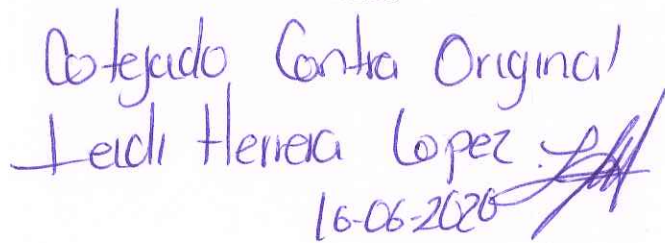 Cotejado Contra Original
Leidi Herrera Lopez
16-06-2020